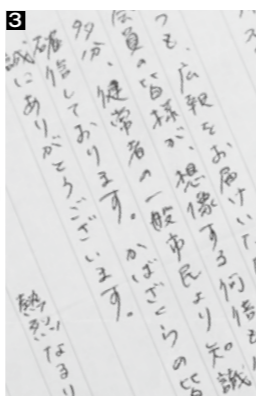 つも、広報をお届けいた
会員の皆様が、想像する何倍も
多分、健常者の一般市民より知識
確信しております。かばざくらの皆
誠にありがとうございます。
熱烈なる
3